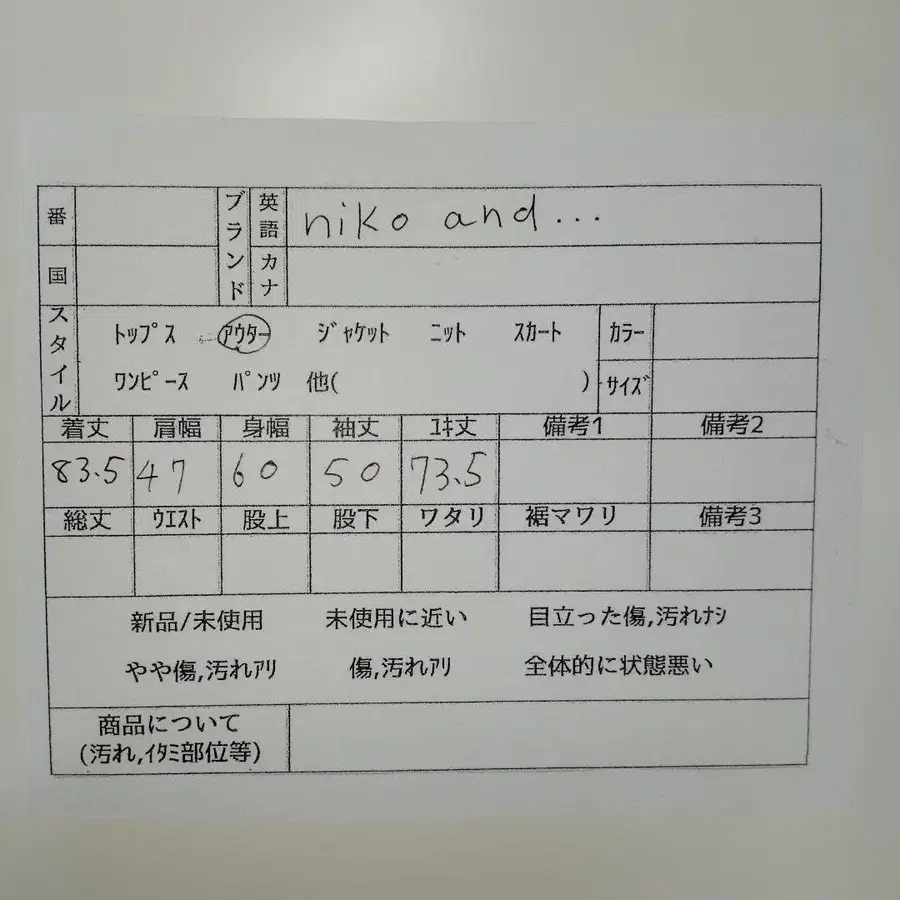 番 ブランド 英語 niko and...
国 カナ
スタイル トップス アウター ジャケット ニット スカート カラー
ワンピース パンツ 他( ) サイズ
着丈 肩幅 身幅 袖丈 ユキ丈 備考1 備考2
83.5 47 60 50 73.5
総丈 ウエスト 股上 股下 ワタリ 裾マワリ 備考3
新品/未使用 未使用に近い 目立った傷,汚れナシ
やや傷,汚れアリ 傷,汚れアリ 全体的に状態悪い
商品について
(汚れ,イタミ部位等)